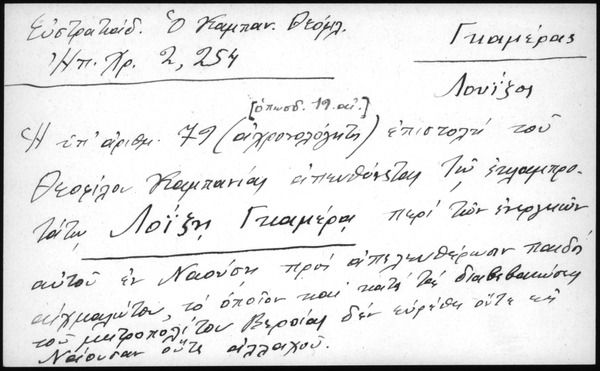 Εὐστρατιάδ. Ὁ Καμπαν. Θεόφιλ.
Ἠπ. Χρ. 2, 254
Γκαμέρας
Λουΐζος
[ὁπωσδ. 19. αἰ.]
Ἡ ὑπ' ἀριθμ. 79 (ἀχρονολόγητη) ἐπιστολὴ τοῦ
Θεοφίλου Καμπανίας ἀπευθύνεται τῷ ἐκλαμπρο-
τάτῳ Λοΐζῃ Γκαμέρᾳ περὶ τῶν ἐνεργειῶν
αὐτοῦ ἐν Ναούσῃ πρὸς ἀπελευθέρωσιν παιδὸς
αἰχμαλώτου, τὸ ὁποῖον καὶ κατὰ τὰς διαβεβαιώσεις
τοῦ μητροπολίτου Βεροίας δὲν εὑρέθη οὔτε εἰς
Νάουσαν οὔτε ἀλλαχοῦ.